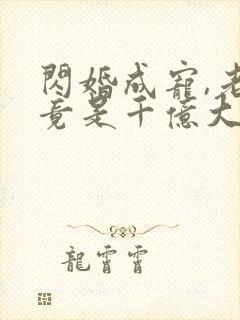 閃婚成寵,老
竟是千億大
龍霄霄